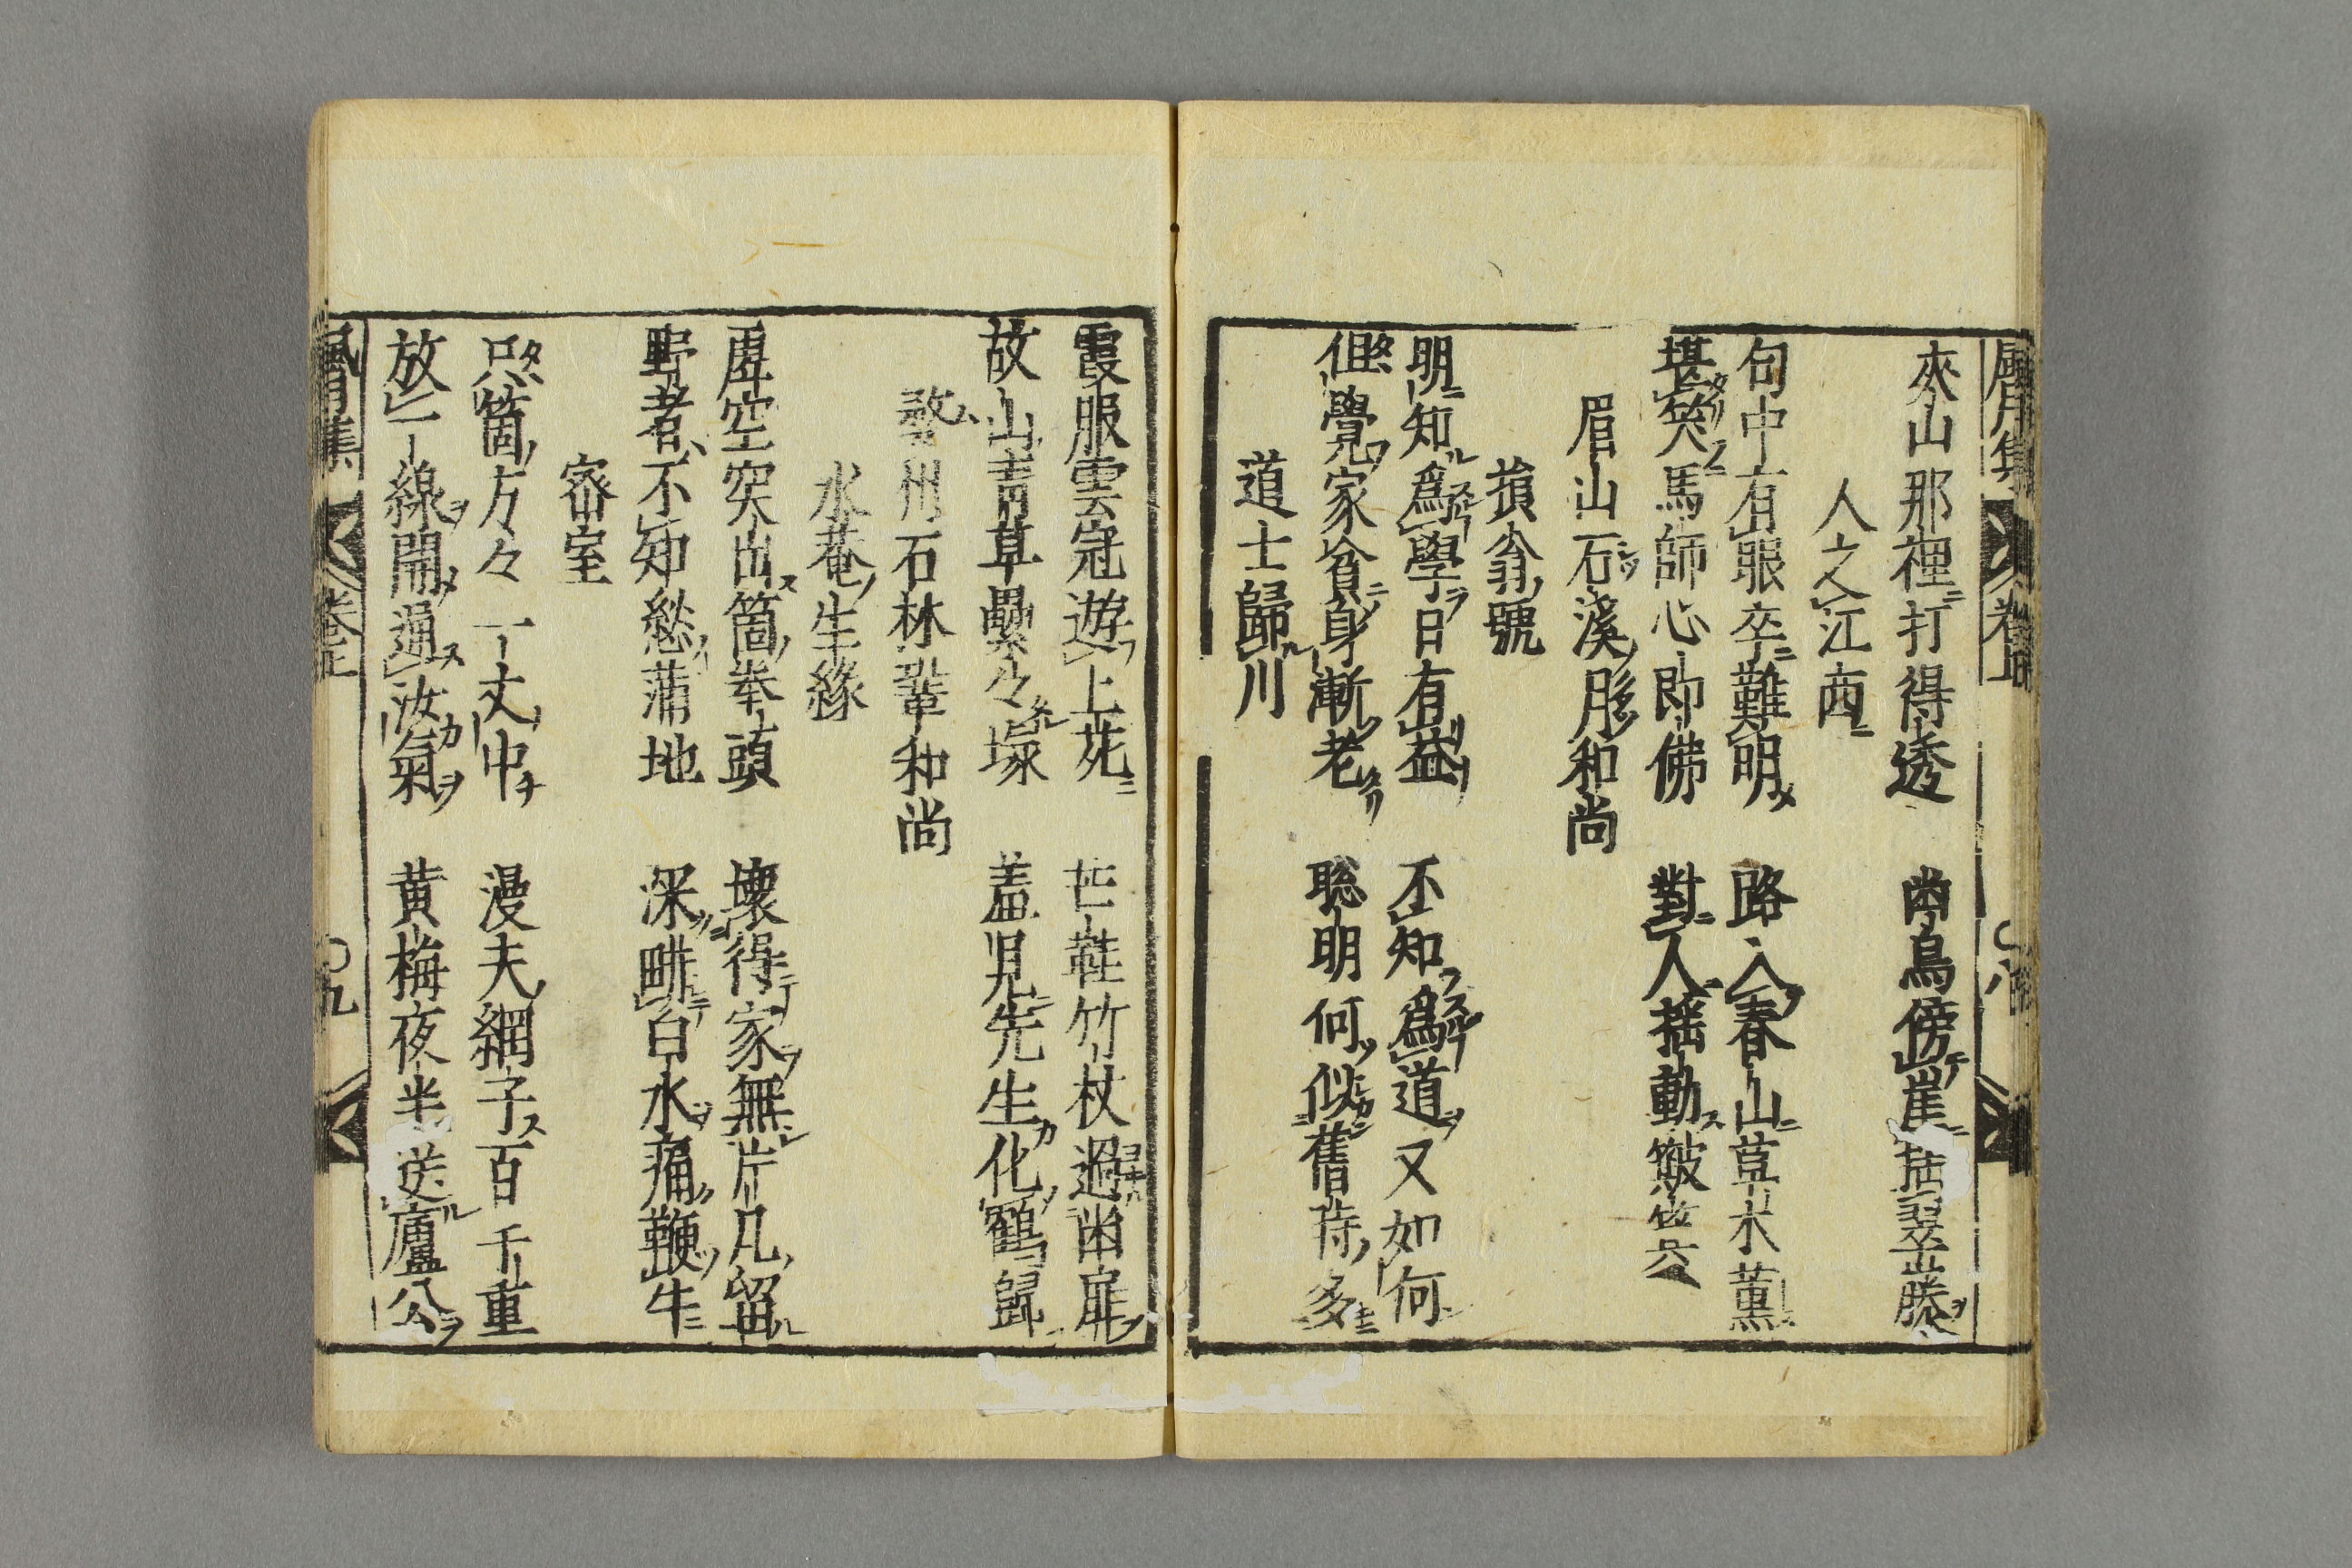 夾山那裡打得透　幽鳥傍崖揺翠藤
人之江西
句中有眼卒難明　路入春山草木薫
堪笑馬師心即佛　對人揺動皺
眉山石溪月和尚
損翁號
明知爲學日有益　不知爲道又如何
但覺家貧身漸老　聡明何似舊時多
道士歸川
霞服雲冠遊上苑　芒鞋竹杖過幽扉
故山青草纍々塚　羞見先生化鶴歸
婺州石林鞏和尚
水菴生縁
虚空突出箇拳頭　壊得家無片瓦留
野者不知愁蒲地　深畊白水痛鞭牛
密室
只箇方々一丈中　漫夫網子百千重
放一線開通汝氣　黄梅夜半送廬公